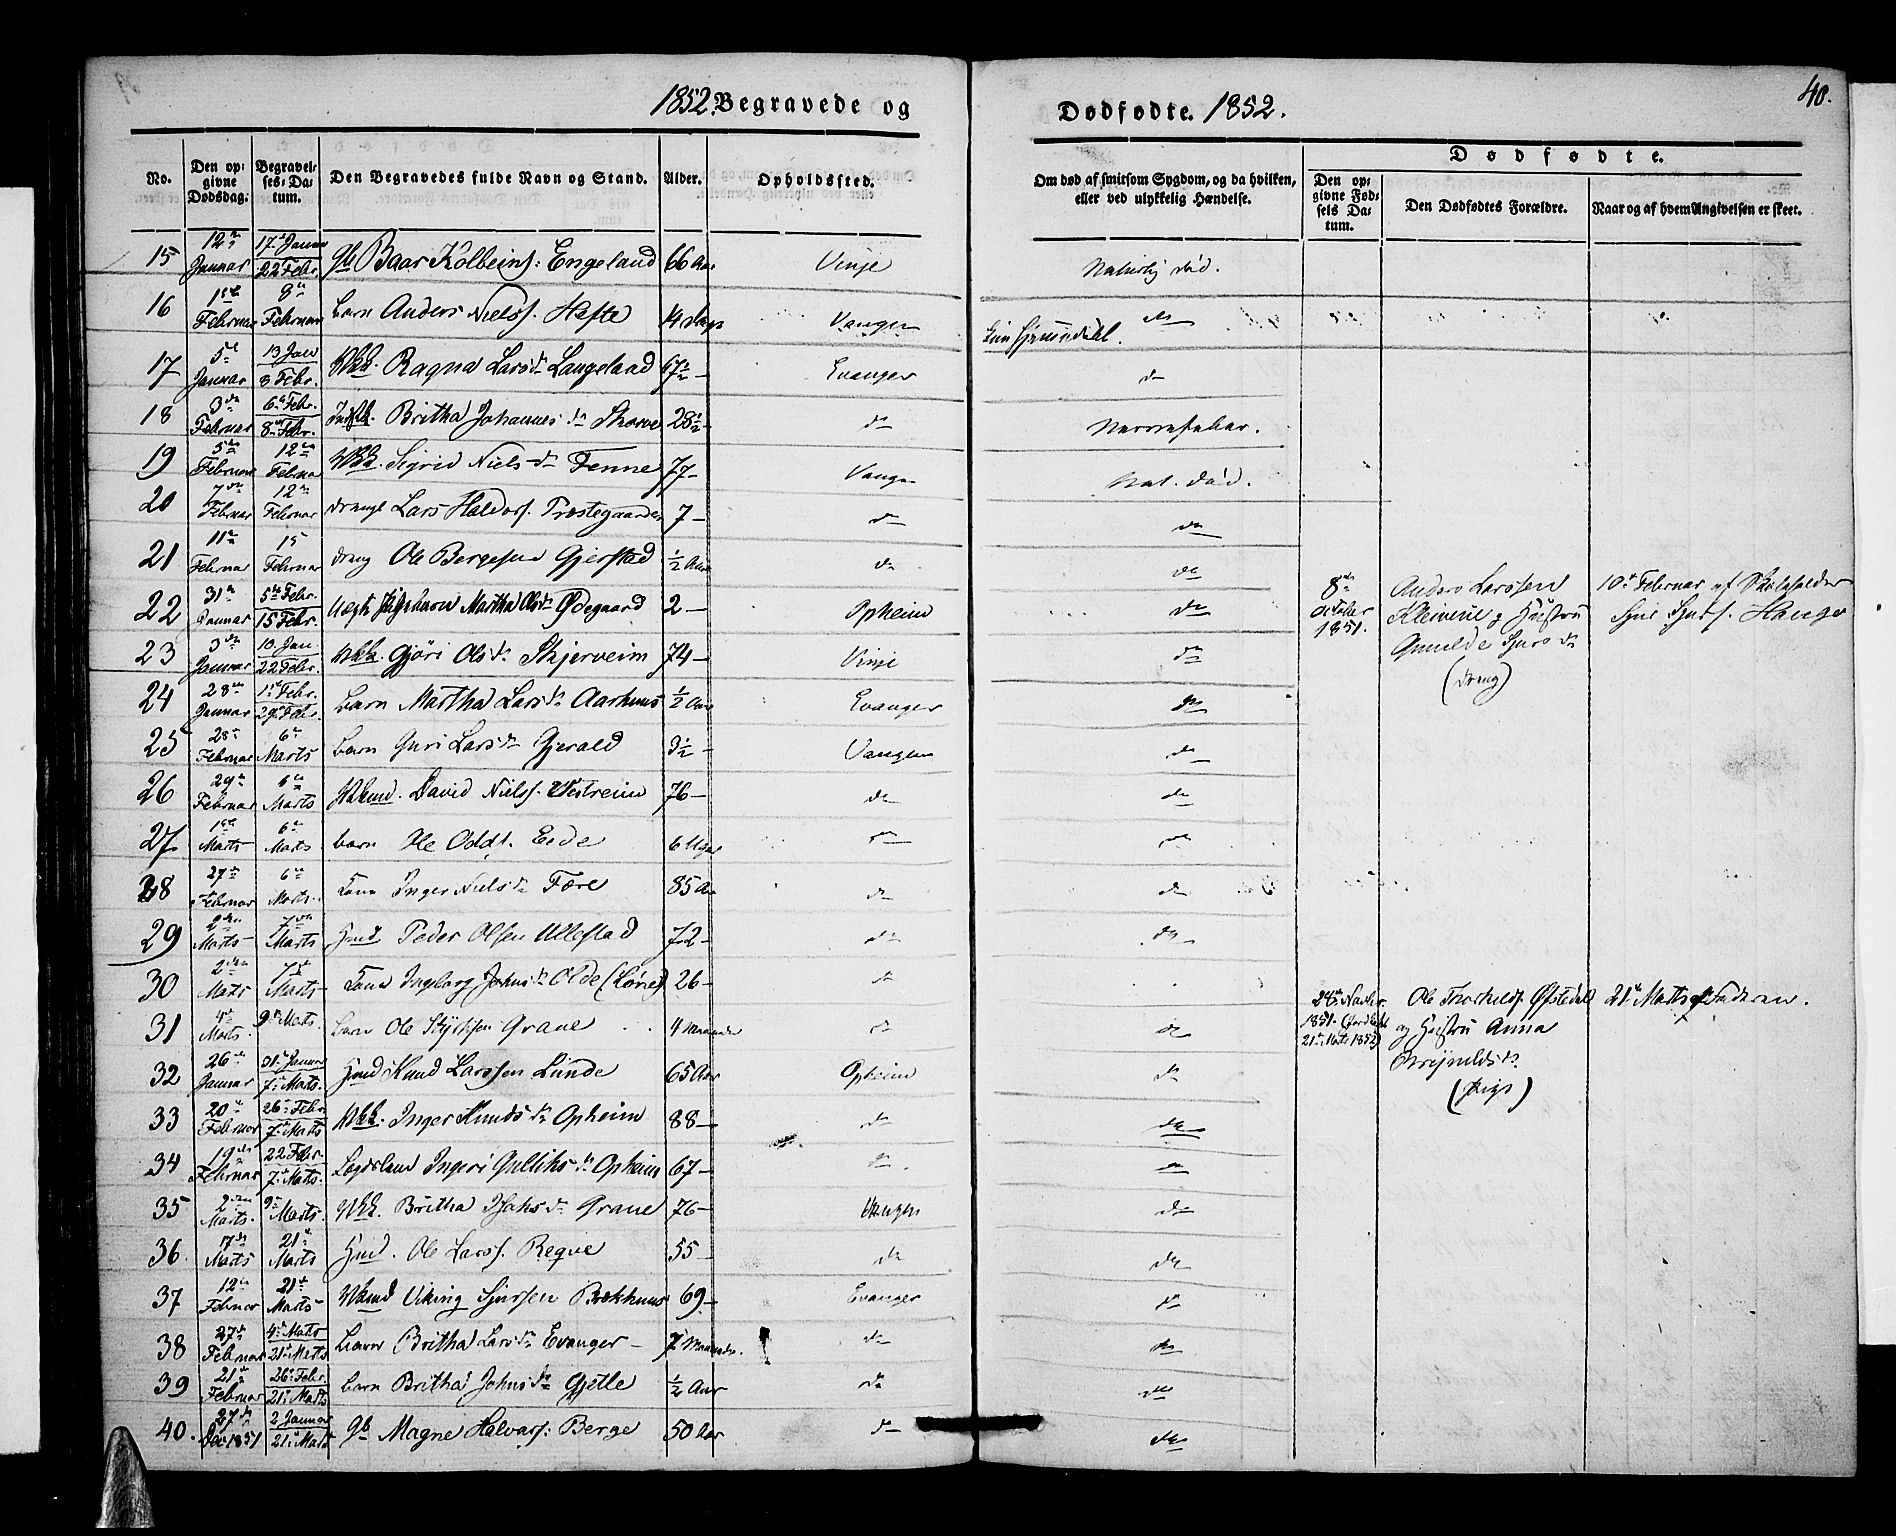 1852. Begravede og
Dødfødte. 1852.
40.
No.
Den opgivne Dødsdag.
Begravelses-Datum.
Den Begravedes fulde Navn og Stand.
Alder.
Opholdssted.
Om død af smitsom Sygdom, og da hvilken, eller ved ulykkelig Hændelse.
Dødfødte.
Den opgivne Fødsels Datum.
Den Dødfødtes Forældre.
Naar og af hvem Angivelsen er skeet.
15 12te Januar 17de Januar 22 Febr. Baar Kolbeins: Engeland 66 Aar Vinje Naturlig død.
16 1ste Februar 8de Februar barn Anders Nielss. Hefte 14 Dage Vangen do
17 5te Januar 13 Jan 8 Febr. Kkk. Ragna Larsdr Langeland 67½ – Evanger do
18 3die Februar 6te Febr. 8de Febr. Britha Johannesdr Skorve 28½ – do Nervefeber.
19 5te Februar 12te Februar Kkk. Sigrid Nielsdr Fenne 77 – Vangen Nat. død.
20 7de Februar 12te Februar dreng Lars Haldors. Prestegaarden 7 – do do
21 11te Februar 15 Februar dreng Ole Bergesen Gjerstad ½ Aar do do
22 31te Januar 5te Febr. 15 Febr. Martha Olsdr Ødegaard 2 – Opheim do
8de October 1851. Anders Larssen Kleivene og Hustru Gunilde Sjursdr (dreng)
10de Februar af Skoleholder Sjur Sjurs. Hauge
23 3die Januar 10. Jan 22 Febr. Kkk. Gjöri Olsdr Skjerveim 74 – Vinje do
24 28de Januar 1ste Febr. 29de Febr. barn Martha Larsdr Aarhuus ½ Aar Evanger do
25 28de Februar 6te Marts barn Guri Larsdr Gjerald 3½ – Vangen do
26 29de Februar 6te Marts Kkmd. David Nielss. Vestreim 76 – do do
27 1ste Marts 6te Marts barn Ole Odds. Eide 6 Uger do do
28 27de Februar 6te Marts. Kone Inger Nielsdr Fære 85 Aar do do
29 2den Marts 7de Marts Hmd Peder Olsen Ullestad 72 – do do
30 2den Marts 7de Marts Kone Ingeborg Johnsdr Olde (Løne) 26 – do
31 4de Marts. 9de Marts. barn Ole Styrksen Grane 4 Maaneder do do
28de Novbr. 1851. 21de Marts 1852) Ole Thorkilds. Øfstedal og Hustru Anna (Pige)
21de Marts af Faderen.
32 26de Januar 31te Januar 7de Marts. Hmd Knud Larssen Lunde 65 Aar Opheim do
33 20de Februar 26de Febr 7de Marts Kkk. Inger Knudsdr Opheim 88 – do do
34 19de Februar 22 Febr. 7de Marts. Ingeri Gulliksdr Opheim 67 – do. do
35 2den Marts. 9de Marts. Kkk. Britha Johsdr Grane 76 – Vangen do
36. 17de Marts 21de Marts Hmd. Ole Larss. Reqve 55 – do do
37 12te Februar 21de Marts Kkmd Viking Sjursen Brekkhuus 69 – Evanger do
38 27de Februar 4de Marts 21de Marts barn Britha Larsdr Evanger – 7 Maaneder. do do
39 21de Februar 26de Febr. 21de Marts barn Britha Johnsdr Gjelle ½ Aar do do
40. 27de Dec 1851 2 Januar 21de Marts Magne Halvors: Berge 50 Aar do do